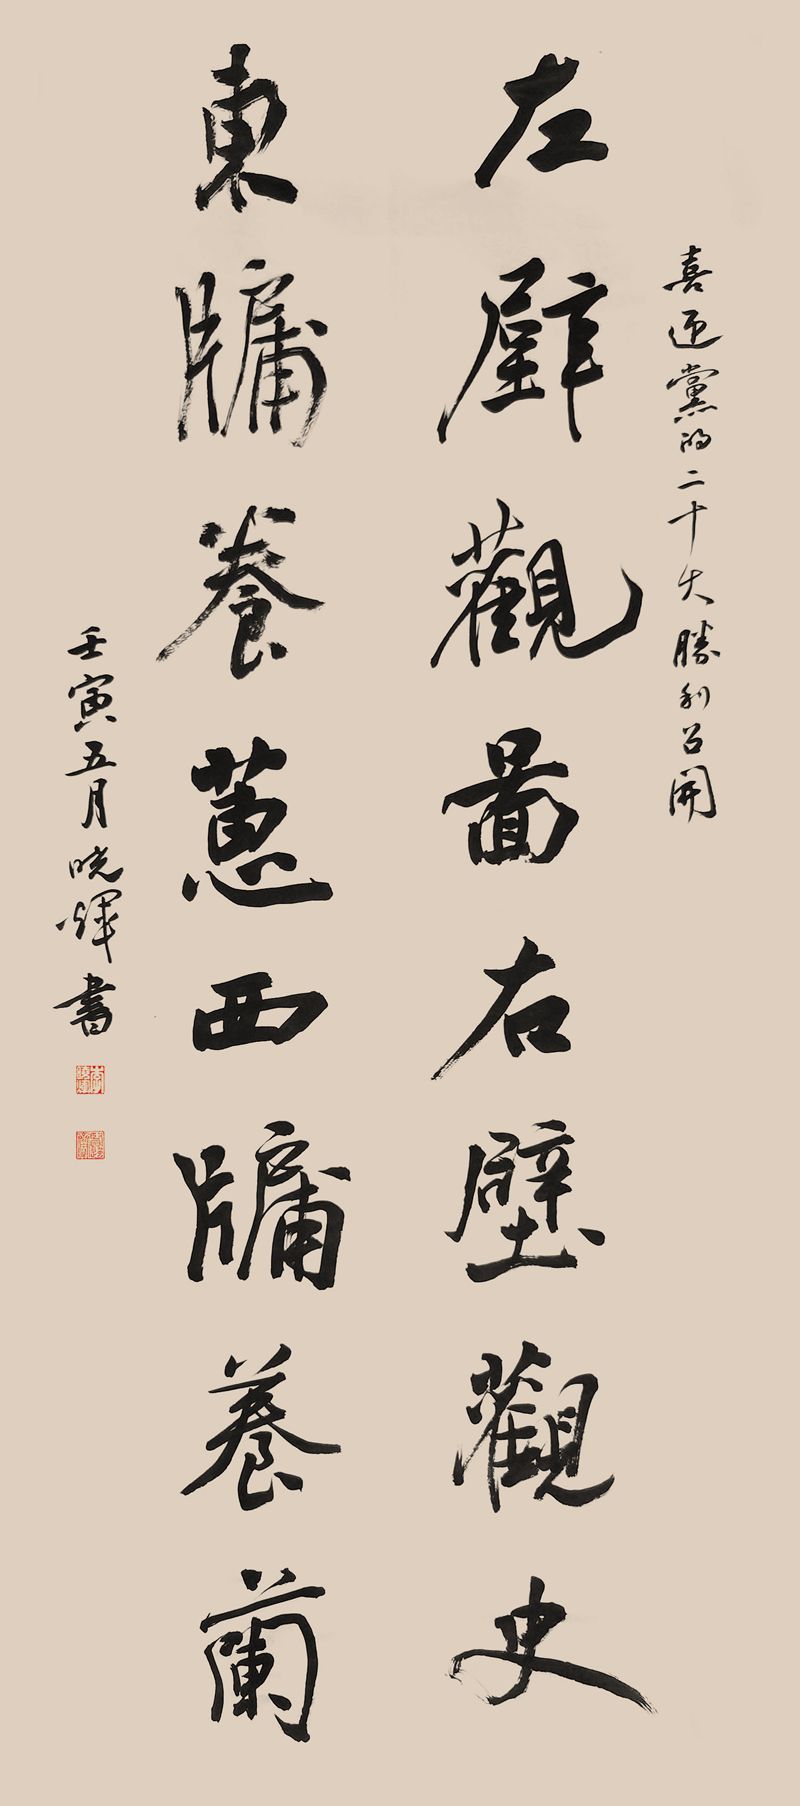 喜迎黨的二十大勝利召開
左壁觀圖右壁觀史
東牗養蕙西牗養蘭
壬寅五月曉輝書